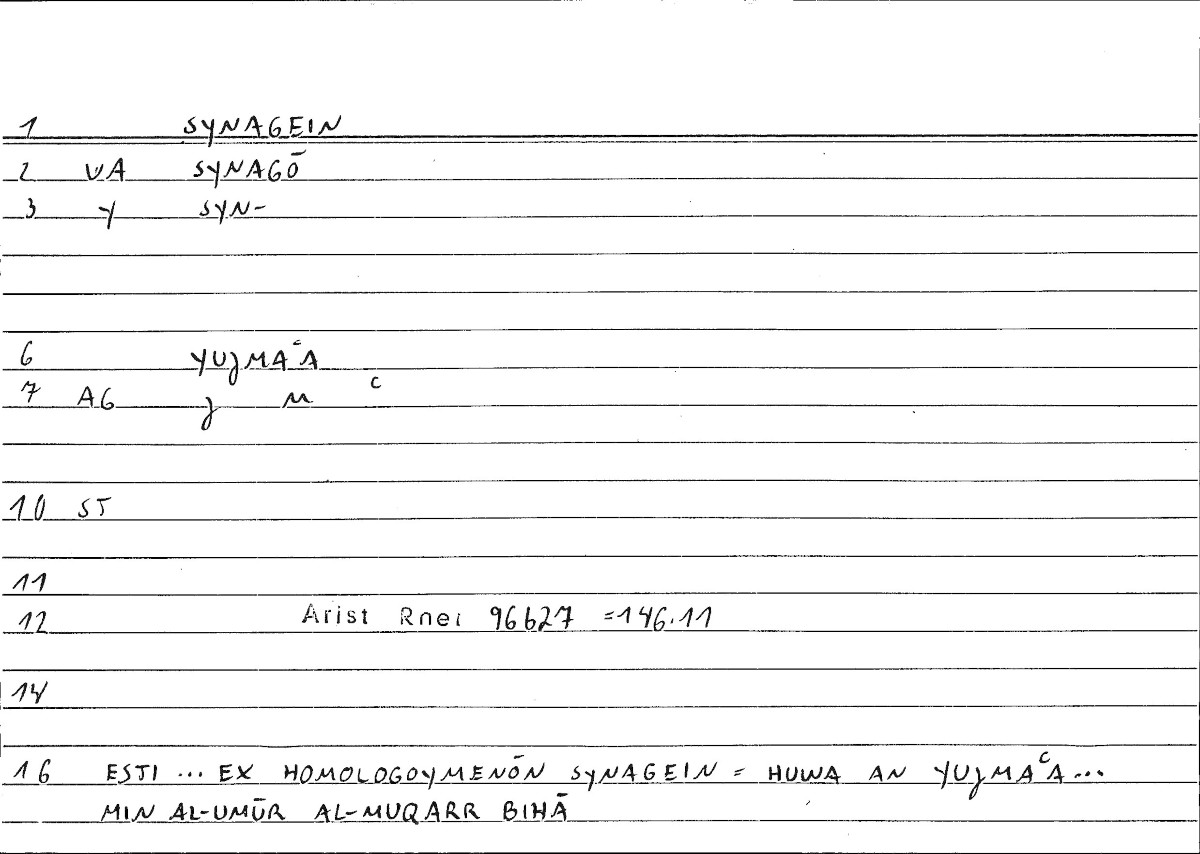 1 SYNAGEIN
2 VA SYNAGŌ
3 Y SYN-
6 YUJMAᶜA
7 AG J M ᶜ
10 ST
11
12 Arist Rhet 96b27 =146.11
14
16 ESTI ... EX HOMOLOGOYMENŌN SYNAGEIN = HUWA AN YUJMAᶜA...
MIN AL-UMŪR AL-MUQARR BIHĀ